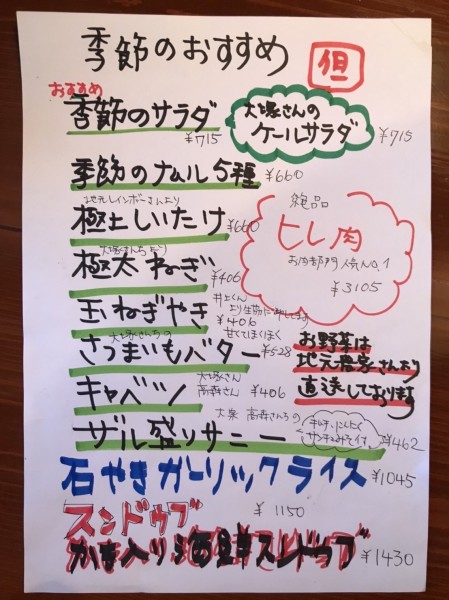 季節のおすすめ
但
おすすめ
季節のサラダ
¥715
大塚さんの
ケールサラダ
¥715
季節のナムル5種 ¥660
地元レインボーさんより
極上しいたけ ¥660
大塚さんちの
極太ねぎ ¥406
絶品
ヒレ肉
お肉部門人気No.1
¥3105
玉ねぎやき
井上くん
¥406
大塚さんちの
さつまいもバター
甘くてほくほく
¥528
お野菜は
地元農家さんより
直送しております
キャベツ
大塚さん
高森さん ¥406
ザル盛りサニー
高森さんちの
¥462
石やきガーリックライス ¥1045
スンドゥブ ¥1150
かま入り海鮮スンドゥブ ¥1430